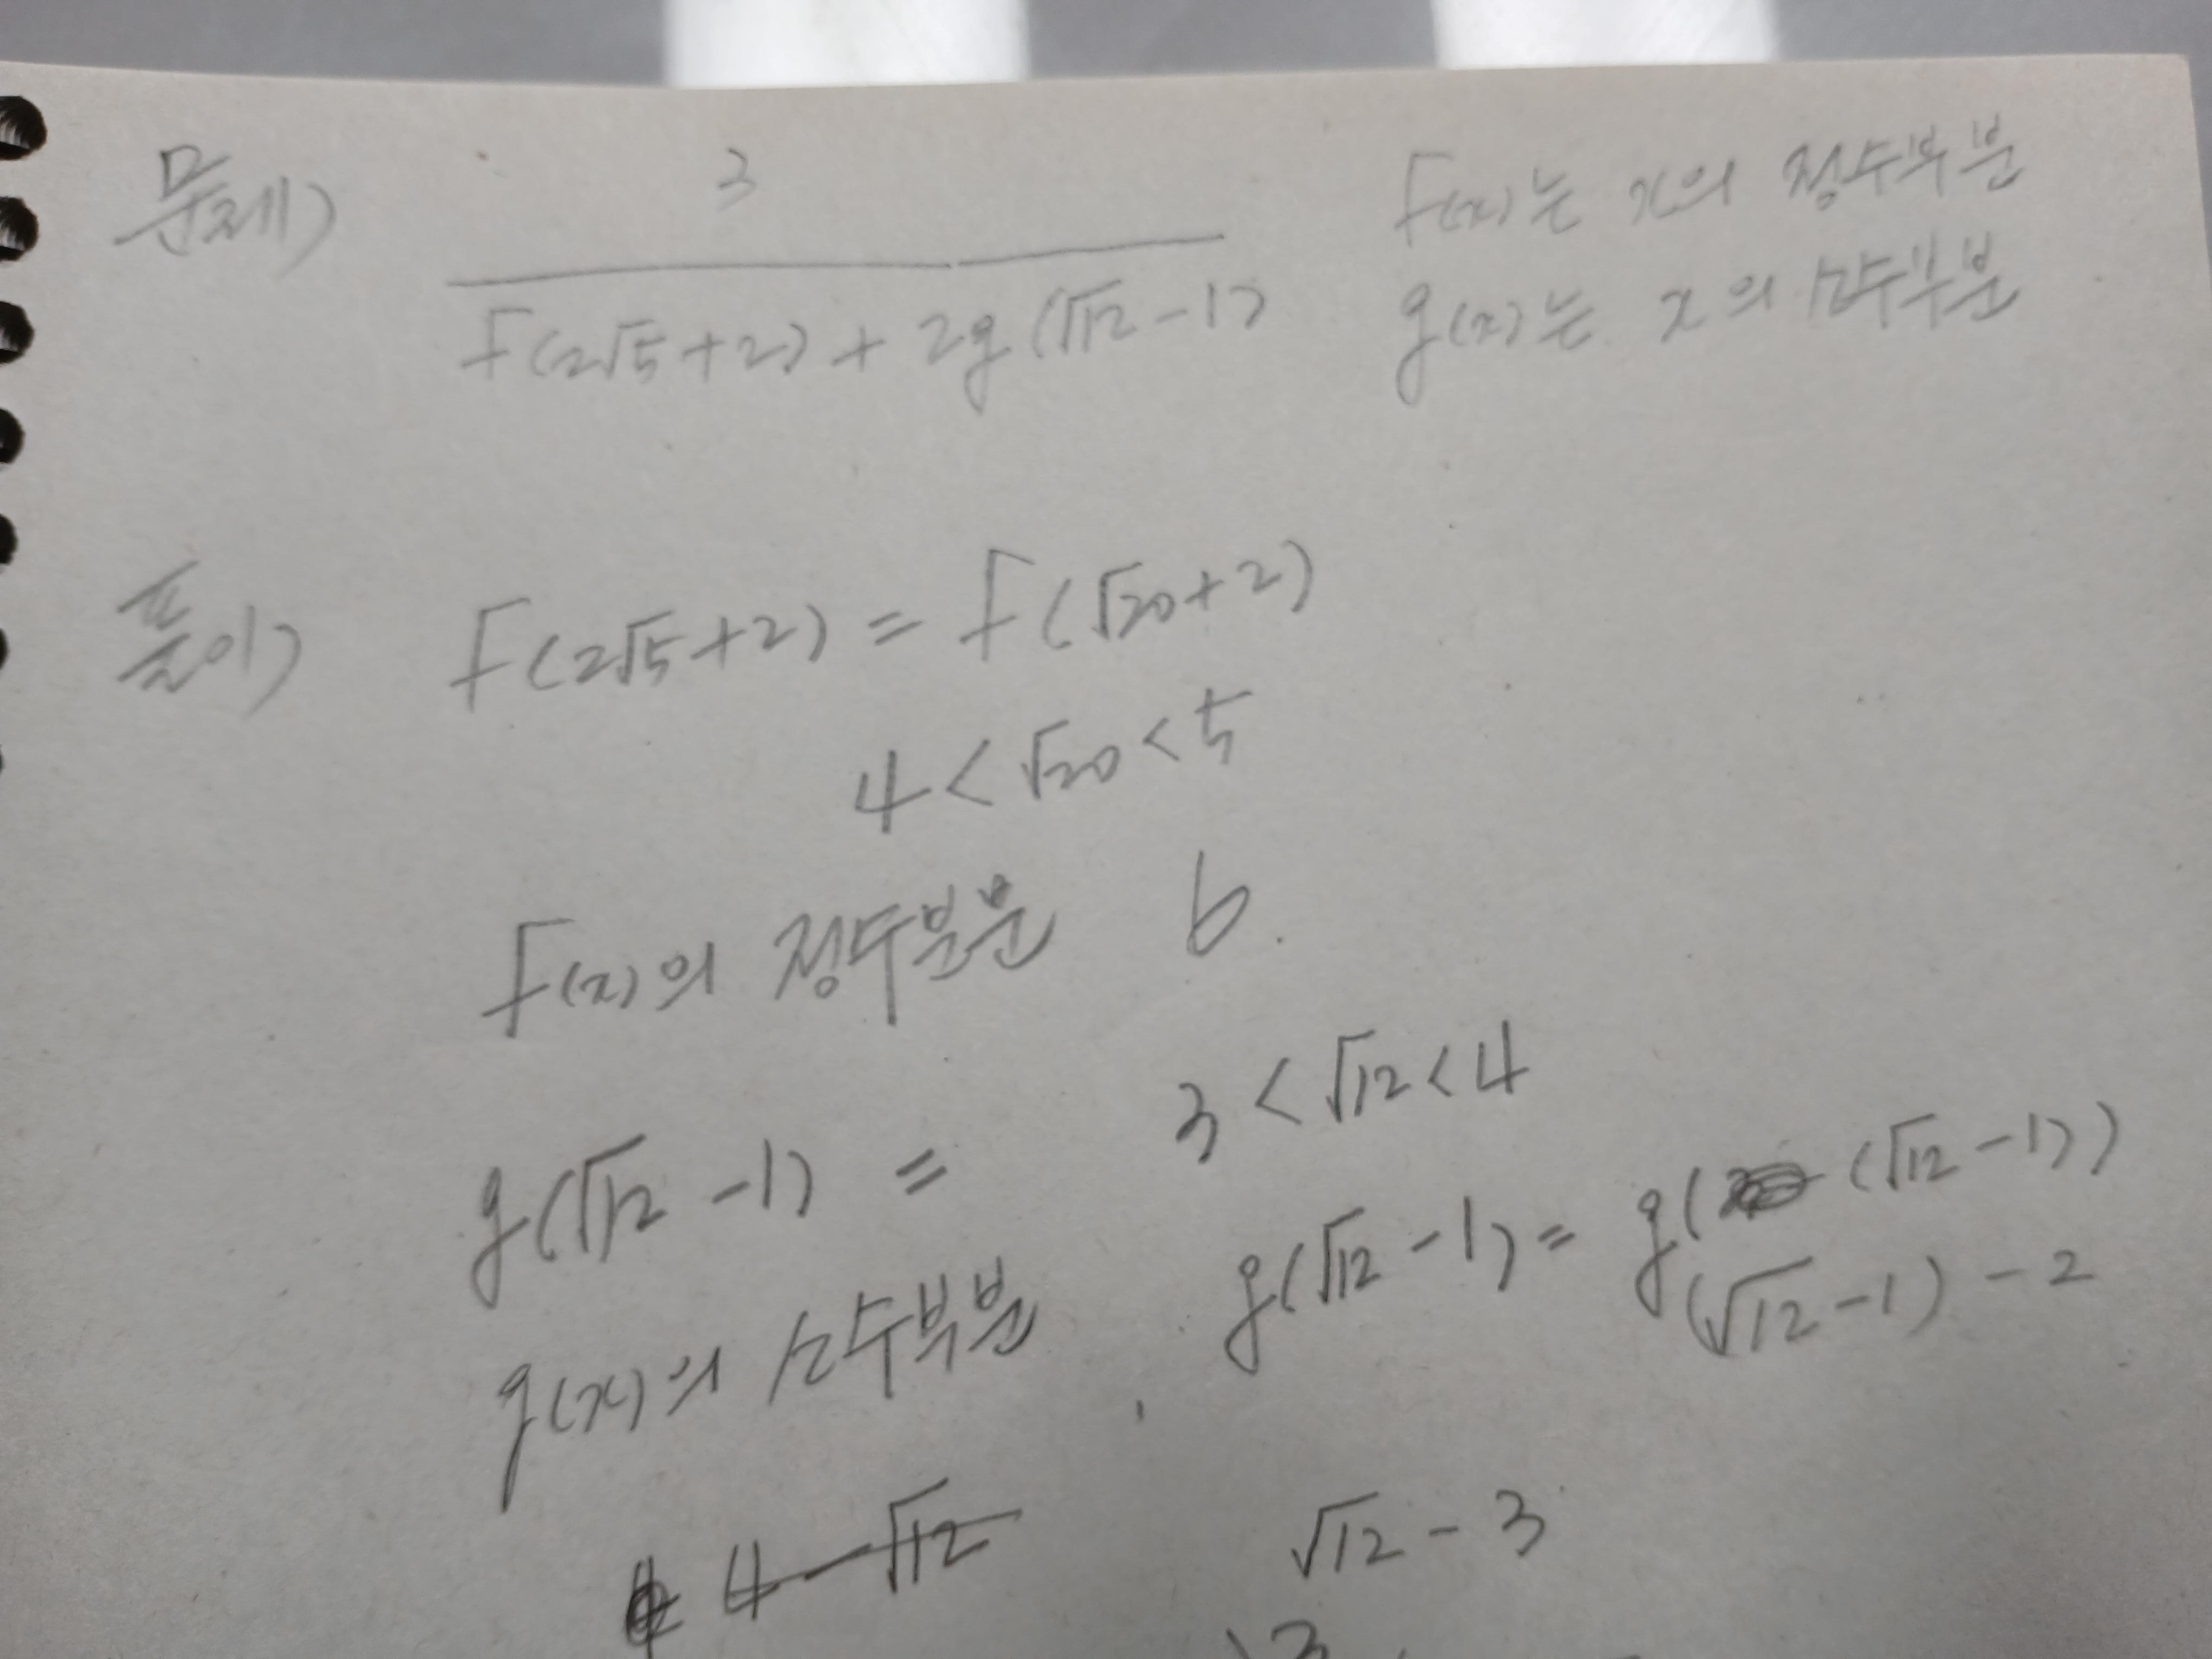 문제) 3 / (f(2√5+2) + 2g(√12-1)) f(x)는 x의 정수부분
g(x)는 x의 소수부분
풀이) f(2√5+2) = f(√20+2)
4 < √20 < 5
f(x)의 정수부분 6.
g(√12 -1) = 3 < √12 < 4
g(x)의 소수부분 g(√12 -1) = g( (√12 -1))
(√12-1) - 2
4-√12 √12 - 3